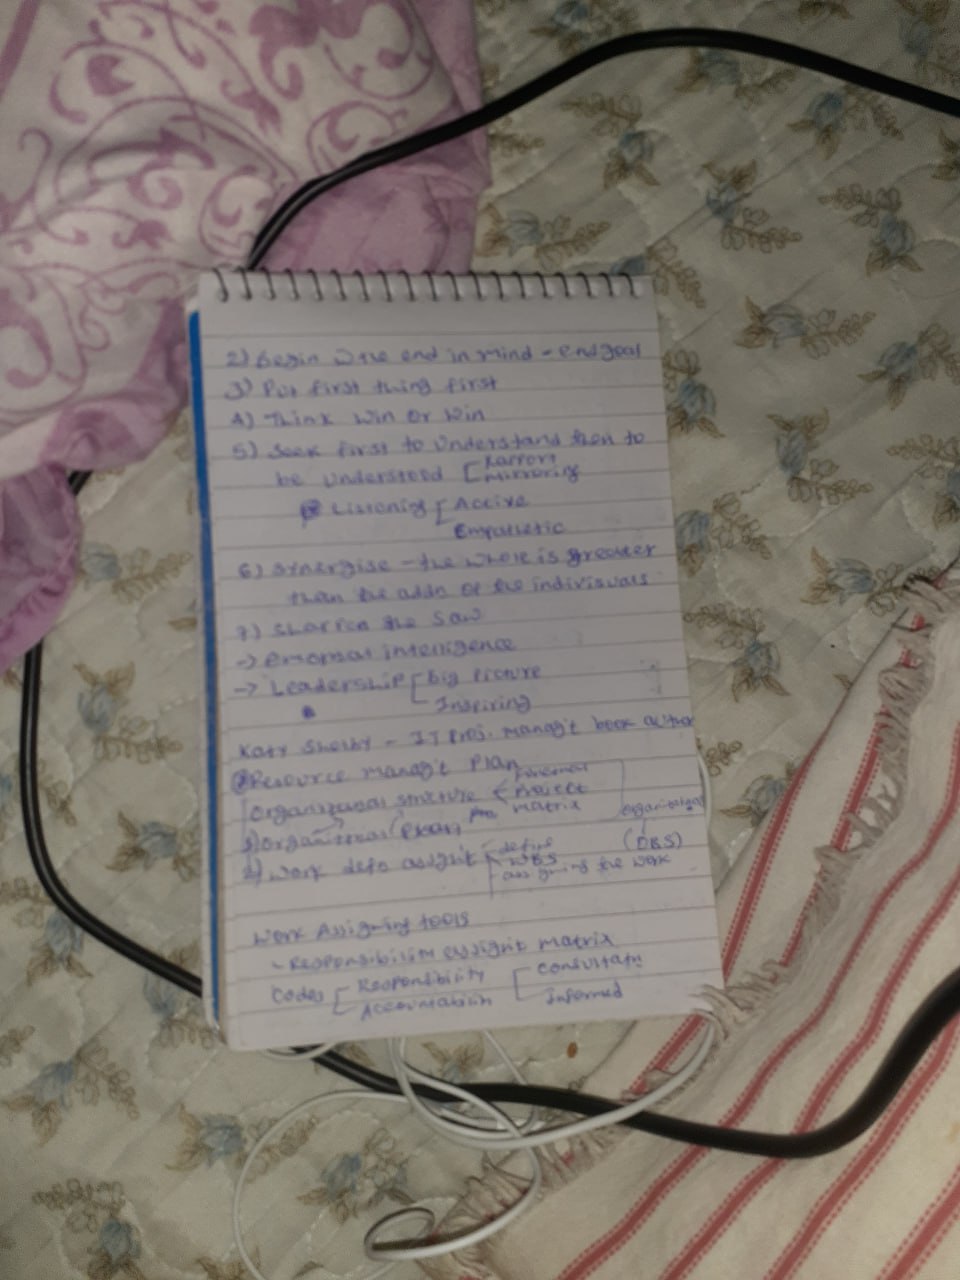 2) Begin w the end in mind - endgoal
3) Put first thing first
4) Think win or win
5) Seek first to understand then to
be understood [ Rapport
Mirroring
Listening [ Active
Empathetic
6) Synergise - the whole is greater
than the addn of the individuals
7) Sharpen the Saw
-> emotional intelligence
-> Leadership [ Big Picture
Inspiring
- IT Proj. manag't book author
Resource manag't Plan
Organizational structure < Functional
Project
matrix
1) Organizational
organizational
(OBS)
2) Work assignt
define
WBS
assigning the work
Work Assigning tools
- Responsibility assignt matrix
Codes [ Responsibility
Accountability
[ Consultatn
Informed